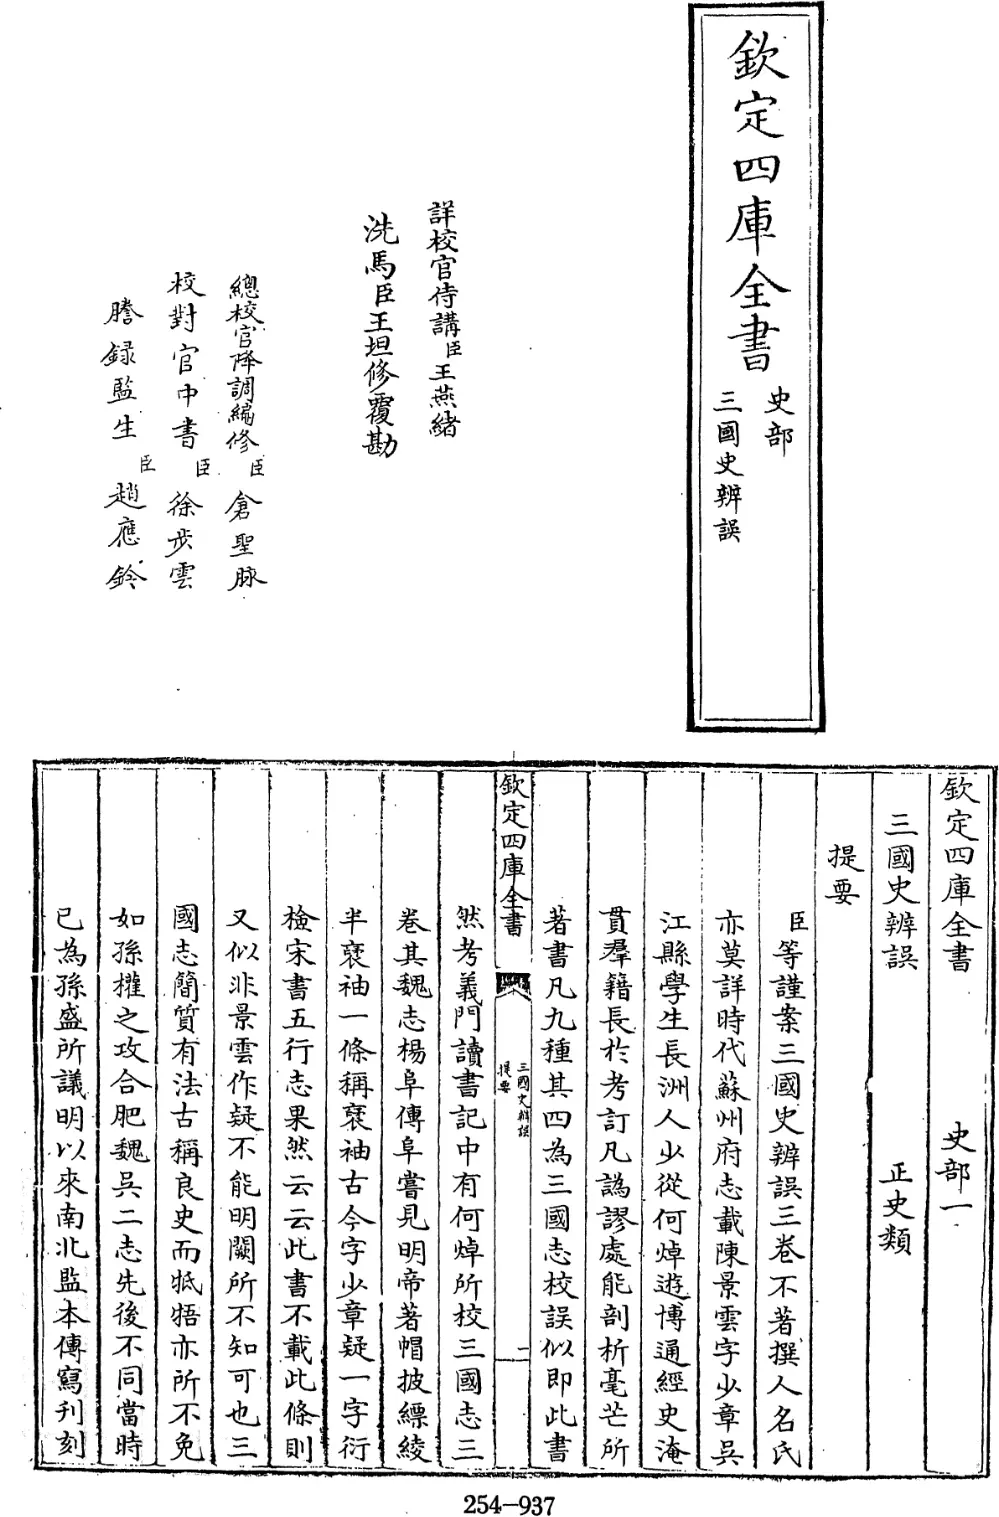 欽定四庫全書
史部
三國史辨誤
詳校官侍講臣王燕緒
洗馬臣王坦修覆勘
總校官降調編修臣倉聖脉
校對官中書臣徐步雲
謄錄監生臣趙應鈴
欽定四庫全書 史部一
三國史辨誤 正史類
提要
臣等謹案三國史辨誤三卷不著撰人名氏
亦莫詳時代蘇州府志載陳景雲字少章吳
江縣學生長洲人少從何焯遊博通經史淹
貫羣籍長於考訂凡譌謬處能剖析毫芒所
著書凡九種其四為三國志校誤似即此書
欽定四庫全書
三國史辨誤
提要
一
然考義門讀書記中有何焯所校三國志三
卷其魏志楊阜傳阜嘗見明帝著帽披縹綾
半袖一條稱褎袖古今字少章疑一字衍
檢宋書五行志果然云云此書不載此條則
又似非景雲作疑不能明闕所不知可也三
國志簡質有法古稱良史而牴牾亦所不免
如孫權之攻合肥魏吳二志先後不同當時
已為孫盛所議明以來南北監本傳寫刋刻
254-937